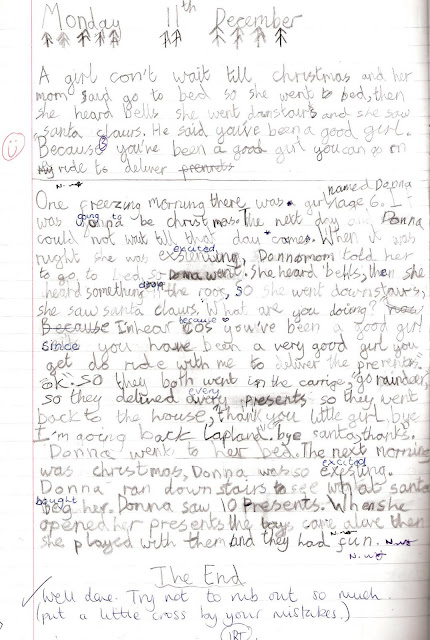 Monday 11th December
A girl con't wait till christmas and her
mom said go to bed so she went to bed, then
she heard bells she went downstairs and she saw
santa claurs. He said you've been a good girl.
Because you've been a good girl you can go on
my ride to deliver prenrets
N.W.
One freezing morning there was a girl named Donna age 6. It
was going to be christmas. The next day and Donna
could not wait till that day comes. When it was
night she was excited, Donna mom told her
to go to bed, so Donna went. She heard bells, then she
heard something on the roof, so she went downstairs,
she saw santa claurs. What are you doing?
Because I'm hear cos because you've been a good girl
since you have been a very good girl you
get do ride with me to deliver the prerents.
OK. SO they both went in the carrige, go raindeer,
so they delived every presents so they went
back to the house, thank you little girl bye
I'm going back Lapland. bye santa, thanks.
Donna went to her bed. The next morning
was christmas, Donna was so excited
Donna ran down stairs to see what santa
bought her. Donna saw 10 Presents. When she
opened her presents the toys came alive then
she played with them and they had fun. N.W.
N.W.
The End
Well done. Try not to rub out so much
(put a little cross by your mistakes.)